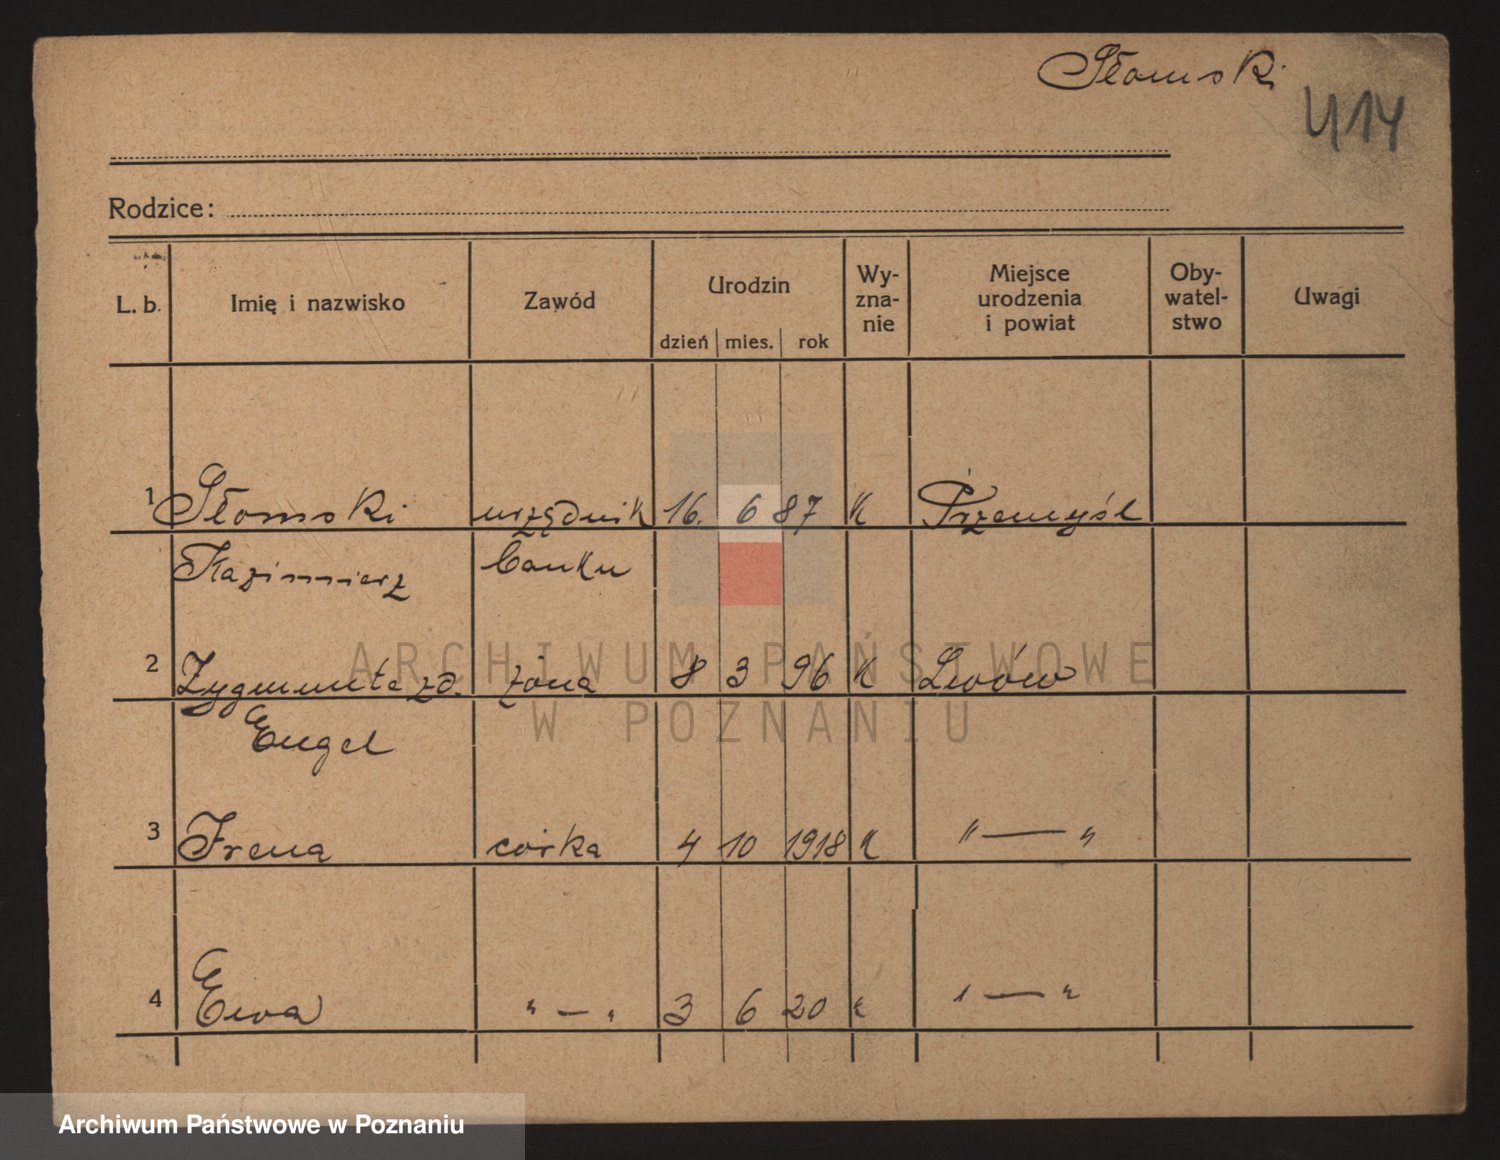 Słomski
414
Rodzice:
L. b. Imię i nazwisko Zawód Urodzin dzień mies. rok Wy- zna- nie Miejsce urodzenia i powiat Oby- watel- stwo Uwagi
1 Słomski urzędnik 16. 6 87 K Przemyśl
Kazimierz banku
2 Zygmunta zd. żona 8 3 96 K Lwów
Engel
3 Irena córka 4 10 1918 K " — "
4 Ewa " — " 3 6 20 K " — "
ARCHIWUM PAŃSTWOWE
W POZNANIU
Archiwum Państwowe w Poznaniu